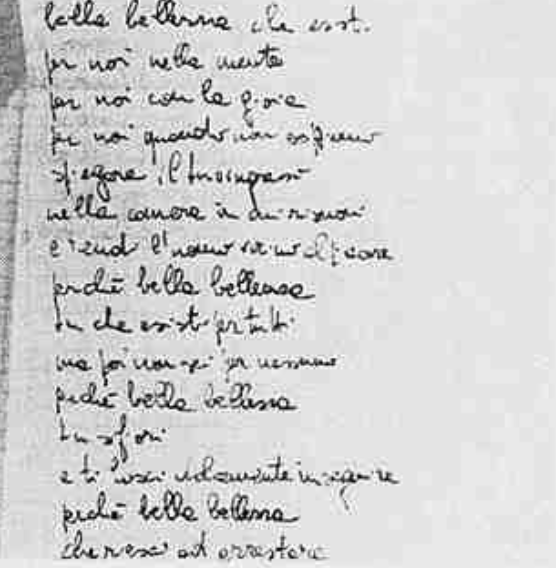 bella bellezza che esisti
per noi nella mente
per noi con la gioia
per noi quando non sappiamo
spiegare il tuo ingresso
nella camera in cui
e rendi l'uomo vicino al
perché bella bellezza
tu che esisti per tutti
ma poi non sei per nessuno
perché bella bellezza
tu sfori
e ti lasci solamente inseguire
perché bella bellezza
che riesci ad arrestare